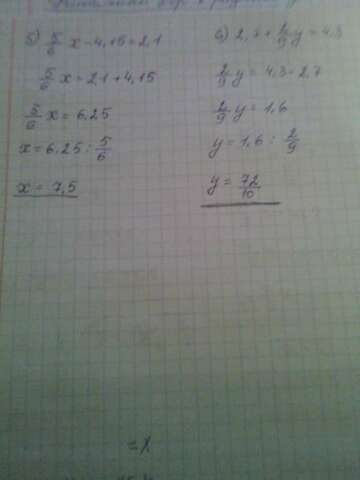 5) 5/6 x - 4,15 = 2,1
5/6 x = 2,1 + 4,15
5/6 x = 6,25
x = 6,25 : 5/6
x = 7,5
6) 2,7 + 2/9 y = 4,3
2/9 y = 4,3 - 2,7
2/9 y = 1,6
y = 1,6 : 2/9
y = 72/10
= x